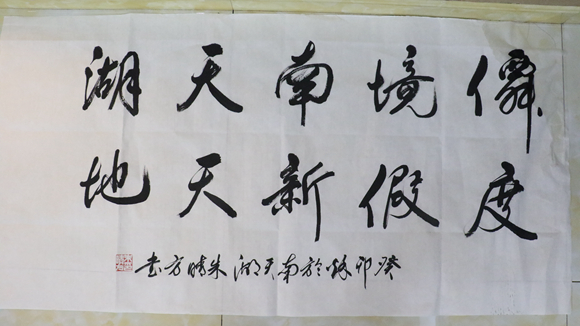 僊境南天湖
度假新天地
癸卯秋於南天湖朱方书